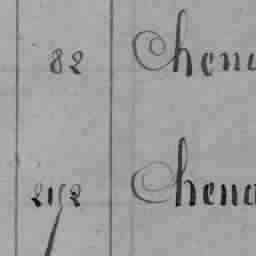 82 Chen
2152 Chena